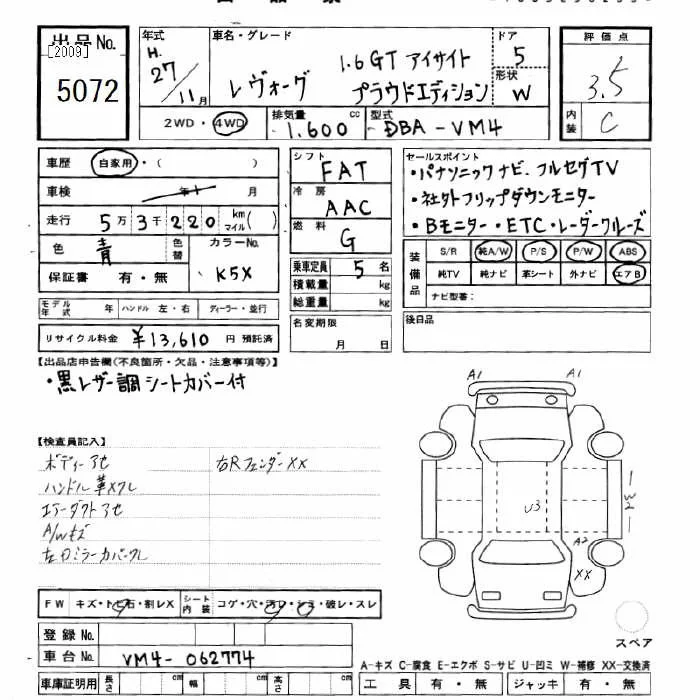 出品No.
[2009]
5072
年式
H.
27
11月
車名・グレード
レヴォーグ
1.6GT アイサイト
プラウドエディション
ドア
5
形状
W
評価点
3.5
内装
C
2WD・4WD
排気量
1.600 cc
型式
DBA-VM4
車歴 自家用・( )
車検 年 月
走行 5万3千220 km マイル( )
色 青 色替
カラーNo.
K5X
保証書 有・無
モデル年式 年 ハンドル 左・右 ディーラー・並行
リサイクル料金 ¥13,610 円 預託済
シフト
FAT
冷房
AAC
燃料
G
乗車定員 5 名
積載量 kg
総重量 kg
名変期限
月 日
セールスポイント
・パナソニックナビ. フルセグTV
・社外フリップダウンモニター
・Bモニター・ETC・レーダークルーズ
装備品
S/R 純A/W P/S P/W ABS
純TV 純ナビ 革シート 外ナビ エアB
ナビ型番:
後日品
【出品店申告欄(不良箇所・欠品・注意事項等)】
・黒レザー調シートカバー付
【検査員記入】
ボディー アセ
右Rフェンダー XX
ハンドル 革スレ
エアーダクト アセ
A/W キズ
左ドミラーカバー
A1
A1
U3
W2
A2
XX
スペア
FW キズ・トビ石・割レX
シート内装 コゲ・穴・汚レ・シミ・破レ・スレ
登録No.
車台No. VM4-062774
車庫証明用 長さ cm 幅 cm 高さ cm
A-キズ C-腐食 E-エクボ S-サビ U-凹ミ W-補修 XX-交換済
工具 有・無 ジャッキ 有・無